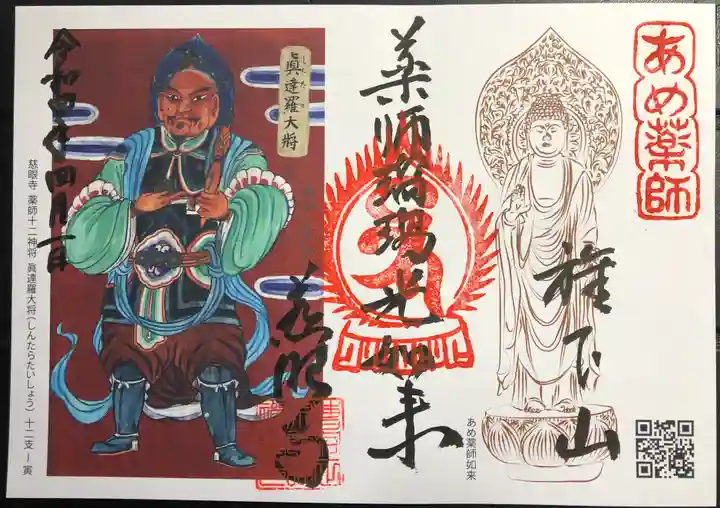 あめ薬師
権下山
あめ薬師如来
薬師瑠璃光如来
慈眼寺
しんたら
眞達羅大将
令和四年四月一日
慈眼寺 薬師十二神将 眞達羅大将(しんたらたいしょう) 十二支ー寅